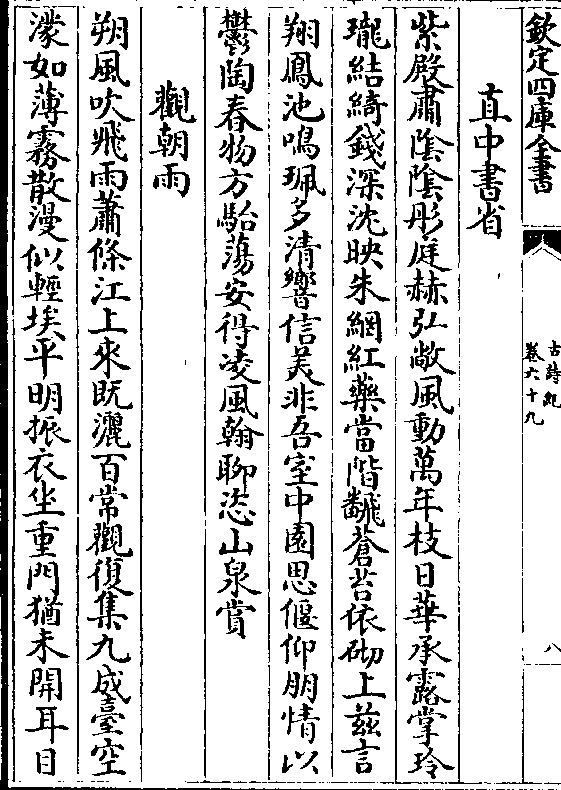 欽定四庫全書
古詩紀
卷六十九
八
直中書省
紫殿肅陰陰彤庭赫弘敞風動萬年枝日華承露掌玲
瓏結綺錢深沈映朱網紅藥當階飜蒼苔依砌上兹言
翔鳳池鳴珮多清響信美非吾室中園思偃仰朋情以
鬱陶春物方駘蕩安得凌風翰聊恣山泉賞
觀朝雨
朔風吹飛雨蕭條江上來既灑百常觀復集九成臺空
濛如薄霧散漫似輕埃平明振衣坐重門猶未開耳目